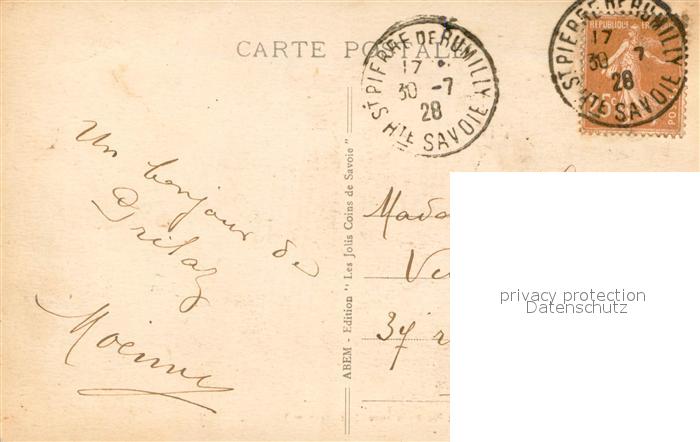 CARTE POSTALE
ST PIERRE DE RUMILLY
17
30 -7
28
HTE SAVOIE
REPUBLIQUE
ST PIERRE DE RUMILLY
17
30 7
28
HTE SAVOIE
Un bonjour de
ABEM - Edition " Les Jolis Coins de Savoie "
Mada
Ve
37 r
privacy protection
Datenschutz